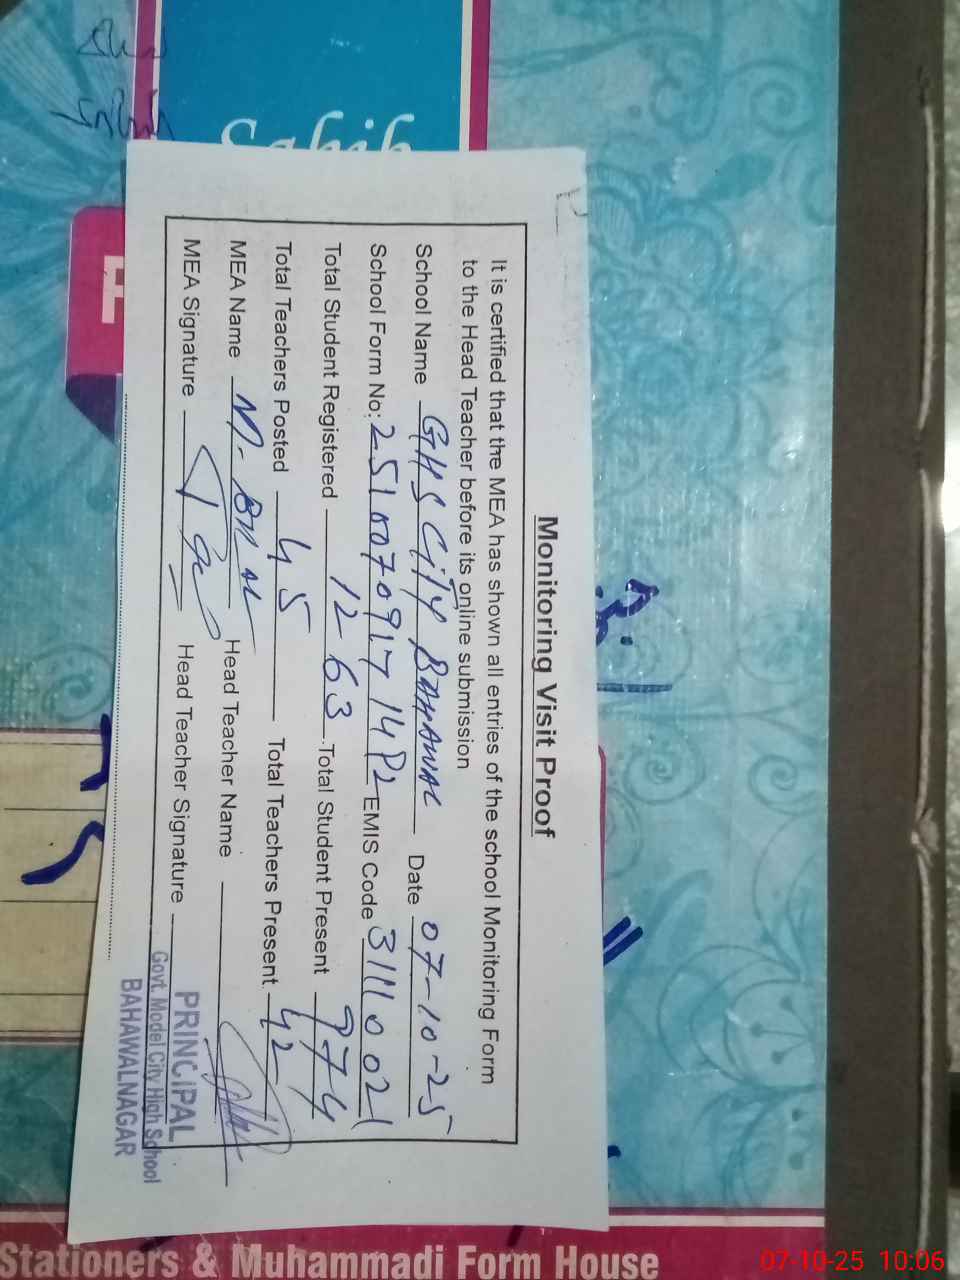 Sahih
Monitoring Visit Proof
It is certified that the MEA has shown all entries of the school Monitoring Form
to the Head Teacher before its online submission
School Name GHS CiTY BAHAWAL Date 07-10-25
School Form No: EMIS Code 31110021
Total Student Registered 1263 Total Student Present 974
Total Teachers Posted 45 Total Teachers Present 42
MEA Name M. Head Teacher Name
MEA Signature Head Teacher Signature
PRINCIPAL
Govt. Model City High School
BAHAWALNAGAR
Stationers & Muhammadi Form House
07-10-25 10:06